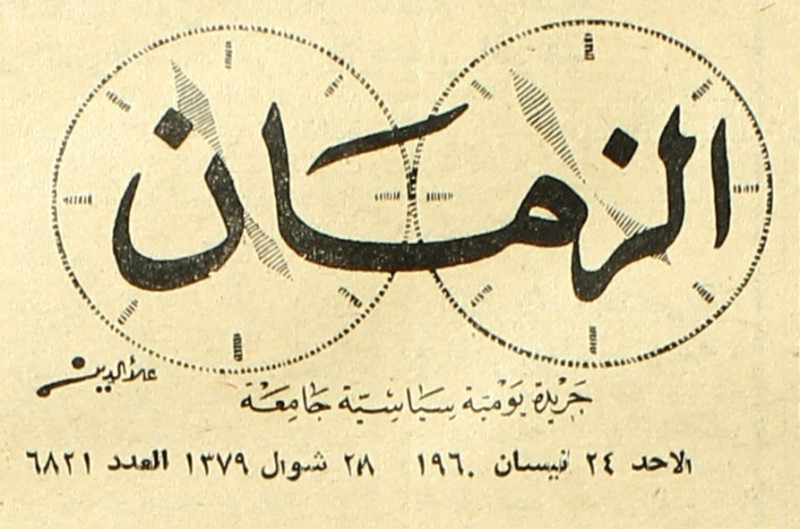 الزمان
علاء الدين
جَرْيدة يَوْميّة سيَاسيّة جَامِعَة
الاحد ٢٤ نيسان ١٩٦٠ ٢٨ شوال ١٣٧٩ العدد ٦٨٢١